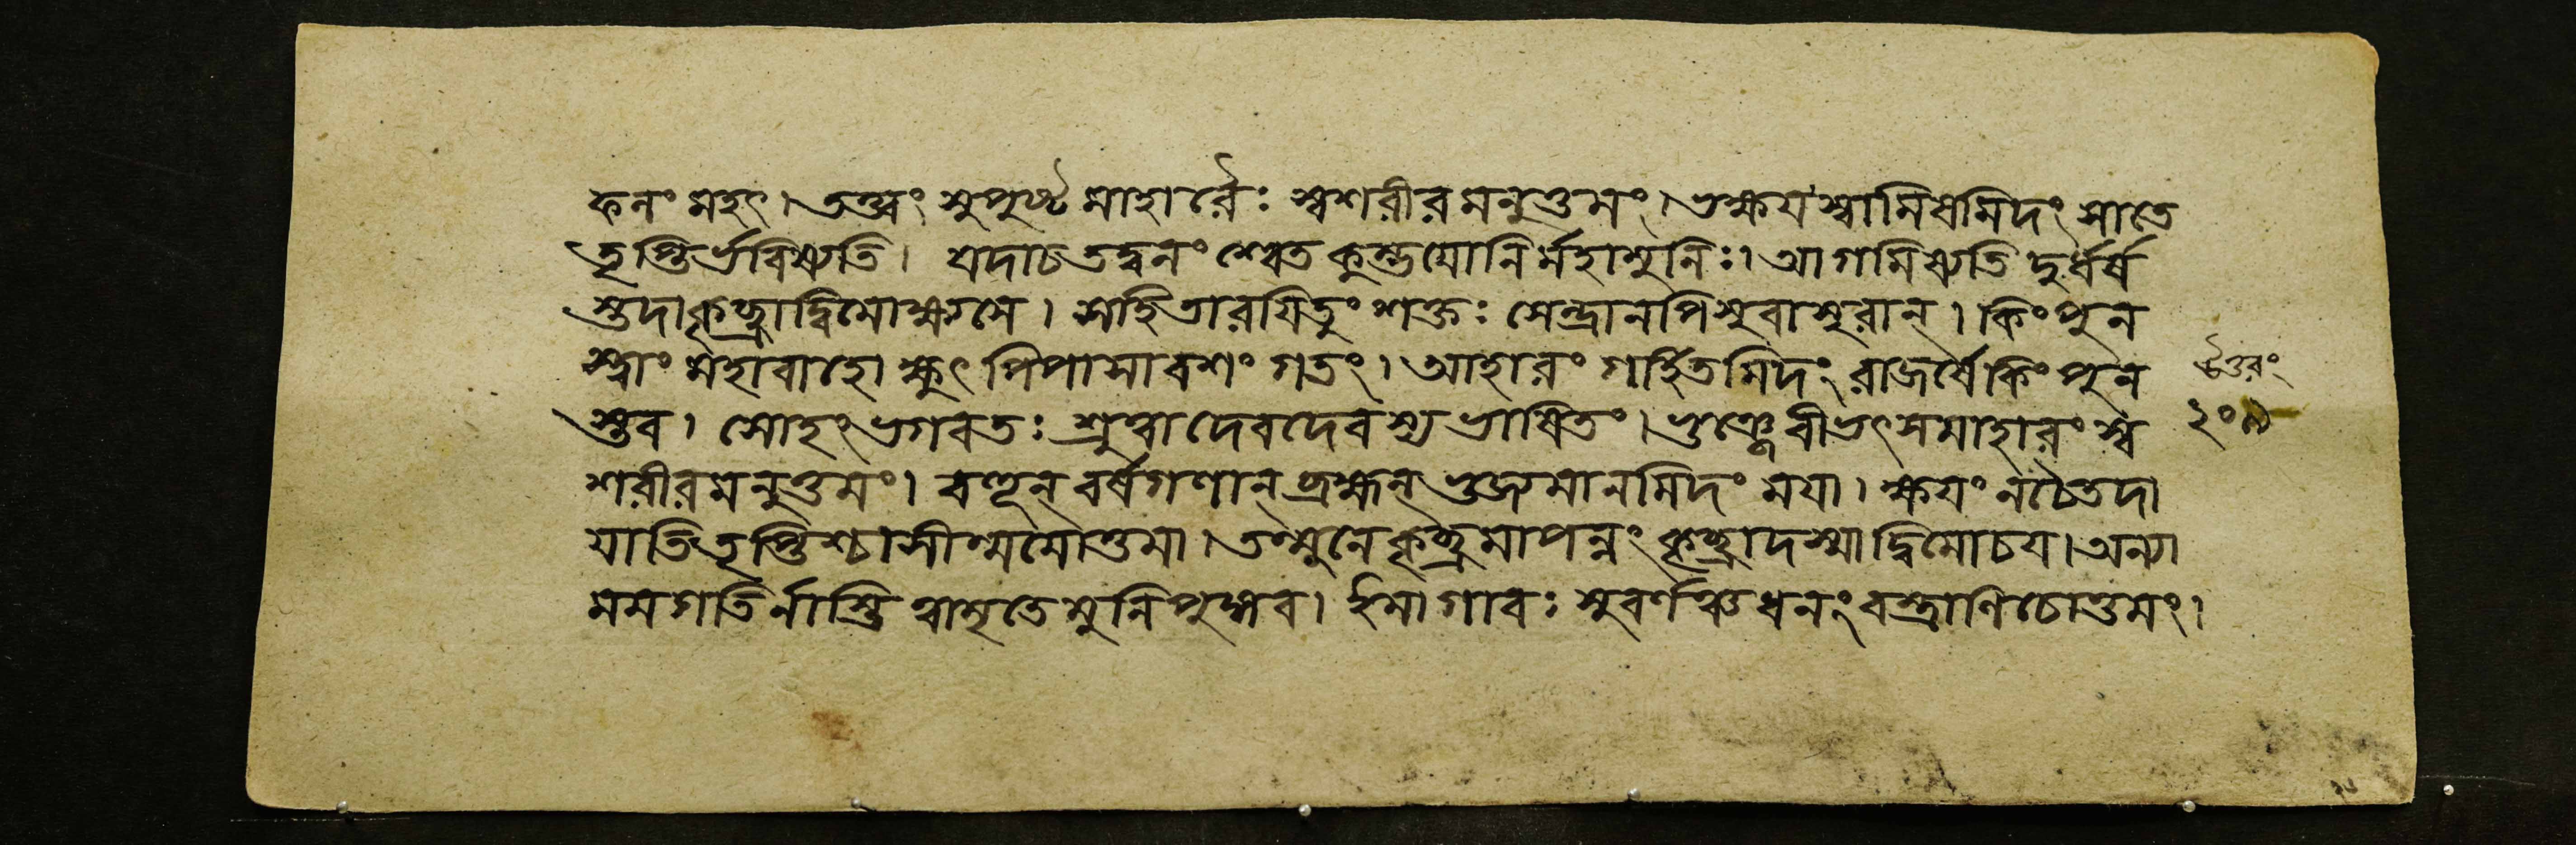 ফনং মহৎ। তত্ত্বং সুপুষ্টমাহারৈঃ স্বশরীরমনুত্তমং। ভক্ষয়স্বামিষমিদং সাতে
তৃপ্তির্ভবিষ্যতি। যদাচ তদ্বনং শ্বেত কুম্ভযোনির্মহামুনিঃ। আগমিষ্যতি দুর্ধর্ষ
স্তদা কৃচ্ছ্রাদ্বিমোক্ষ্যসে। সহি তারয়িতুং শক্তঃ সেন্দ্রানপি সুরাসুরান্। কিং পুন
স্ত্বাং মহাবাহো ক্ষুৎ পিপাসাবশং গতং। আহারং গর্হিতমিদং রাজর্ষে কিং পুন
স্তব। সোহং ভগবতঃ শ্রুত্বা দেবদেবস্য ভাষিতং। ভুঞ্জে বীভৎসমাহারং স্ব
শরীরমনুত্তমং। বহূন্ বর্ষগণান্ ব্রহ্মন্ ভুজ্যমানমিদং ময়া। ক্ষয়ং নচৈতদা
যাতি তৃপ্তিশ্চাসীন্মমোত্তমা। তন্মুনে কৃচ্ছ্রমাপন্নং কৃচ্ছ্রাদস্মাদ্বিমোচয়। অন্যা
মম গতির্নাস্তি ত্বামৃতে মুনিপুঙ্গব। ইমা গাবঃ সুবর্ণঞ্চ ধনং বস্ত্রাণি চোত্তমং।
উত্তরং
২০৯